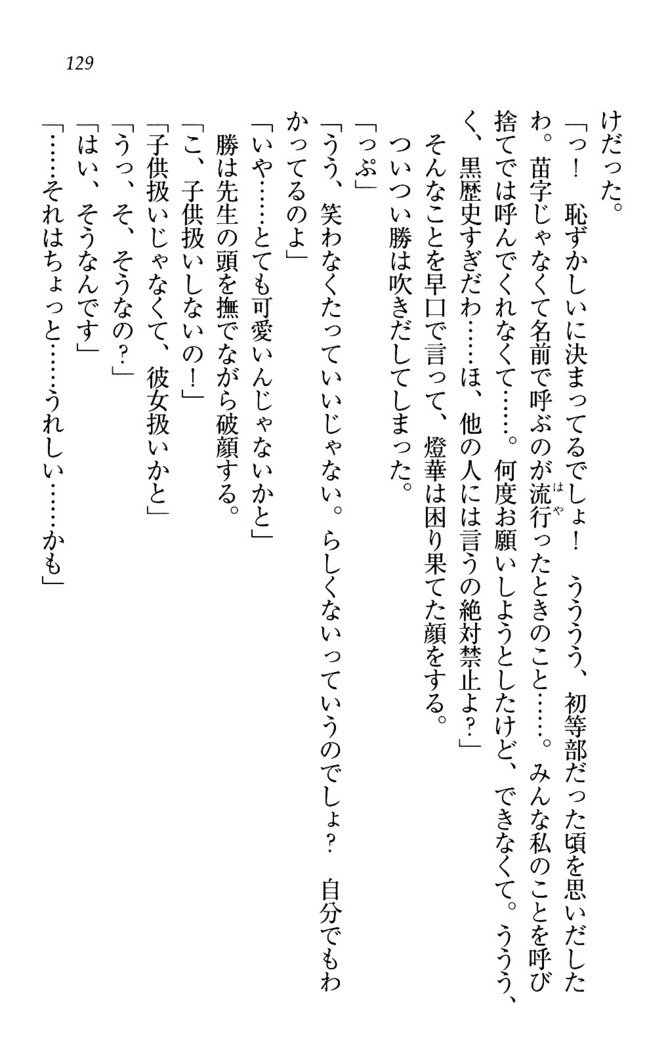 129
けだった。
「っ！　恥ずかしいに決まってるでしょ！　うううう、初等部だった頃を思いだした
わ。苗字じゃなくて名前で呼ぶのが流行ったときのこと……。みんな私のことを呼び
捨てでは呼んでくれなくて……。何度お願いしようとしたけど、できなくて。ううう、
く、黒歴史すぎだわ……ほ、他の人には言うの絶対禁止よ？」
そんなことを早口で言って、燈華は困り果てた顔をする。
ついつい勝は吹きだしてしまった。
「っぷ」
「うう、笑わなくたっていいじゃない。らしくないっていうのでしょ？　自分でもわ
かってるのよ」
「いや……とても可愛いんじゃないかと」
勝は先生の頭を撫でながら破顔する。
「こ、子供扱いしないの！」
「子供扱いじゃなくて、彼女扱いかと」
「うっ、そ、そうなの？」
「はい、そうなんです」
「……それはちょっと……うれしい……かも」